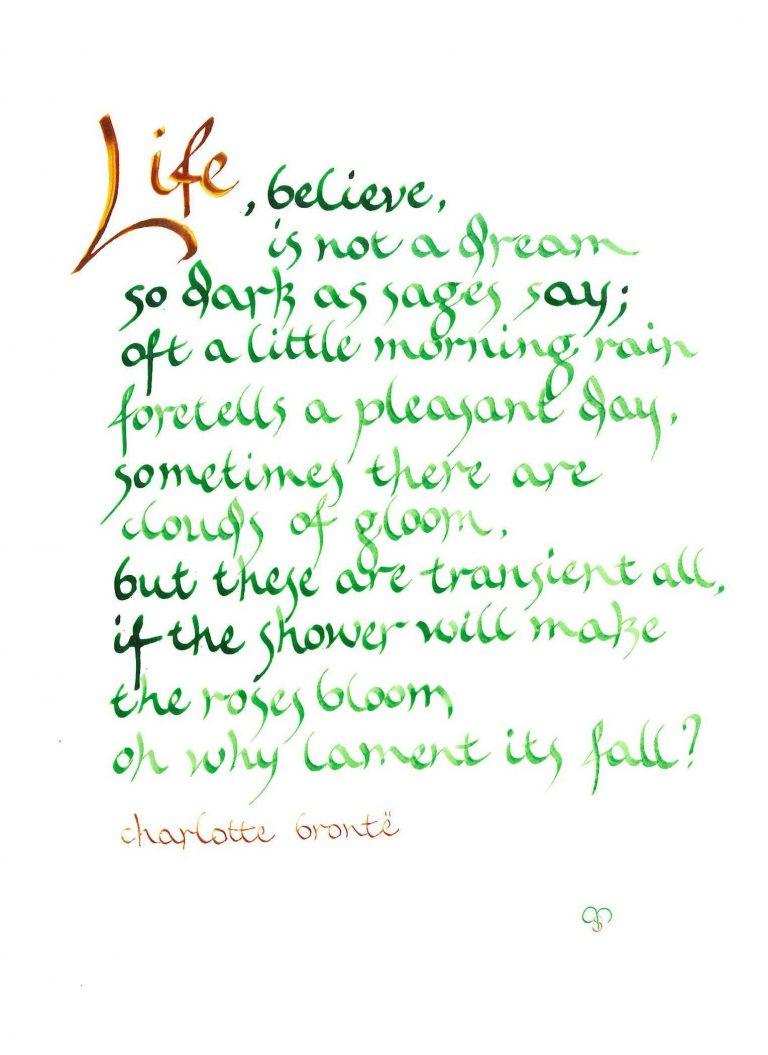 Life, believe,
is not a dream
so dark as sages say;
oft a little morning rain
foretells a pleasant day,
sometimes there are
clouds of gloom,
but these are transient all,
if the shower will make
the roses bloom,
oh why lament its fall?
charlotte brontë